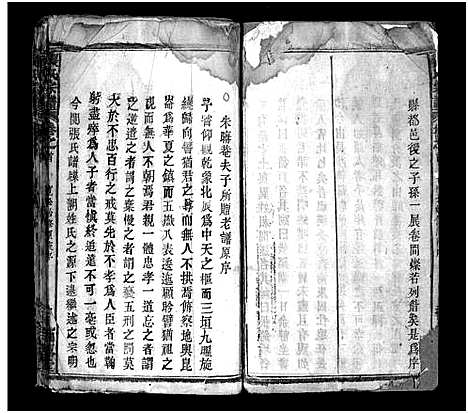 縣都邑後之子孫一展卷間燦若列眉矣是爲序
朱晦菴夫子所贈老譜原序
予嘗仰觀乾象北辰爲中天之樞而三垣九曜旋
繞歸向譬猶君之尊而無人不拱焉俯察地輿崑
崙爲華夏之鎮而五嶽八表逶迤顧盼譬猶祖之
親而無人不朝焉君親一體忠孝一道忘之者謂
之逆道之者謂之棄慢之者謂之褻五刑之罰莫
大於不忠百行之戒莫先於不孝爲人臣者當鞠
躬盡瘁爲人子者當慎終追遠不可一毫或忽也
今閱張氏譜牒上溯姓氏之源下逮繼述之宗明